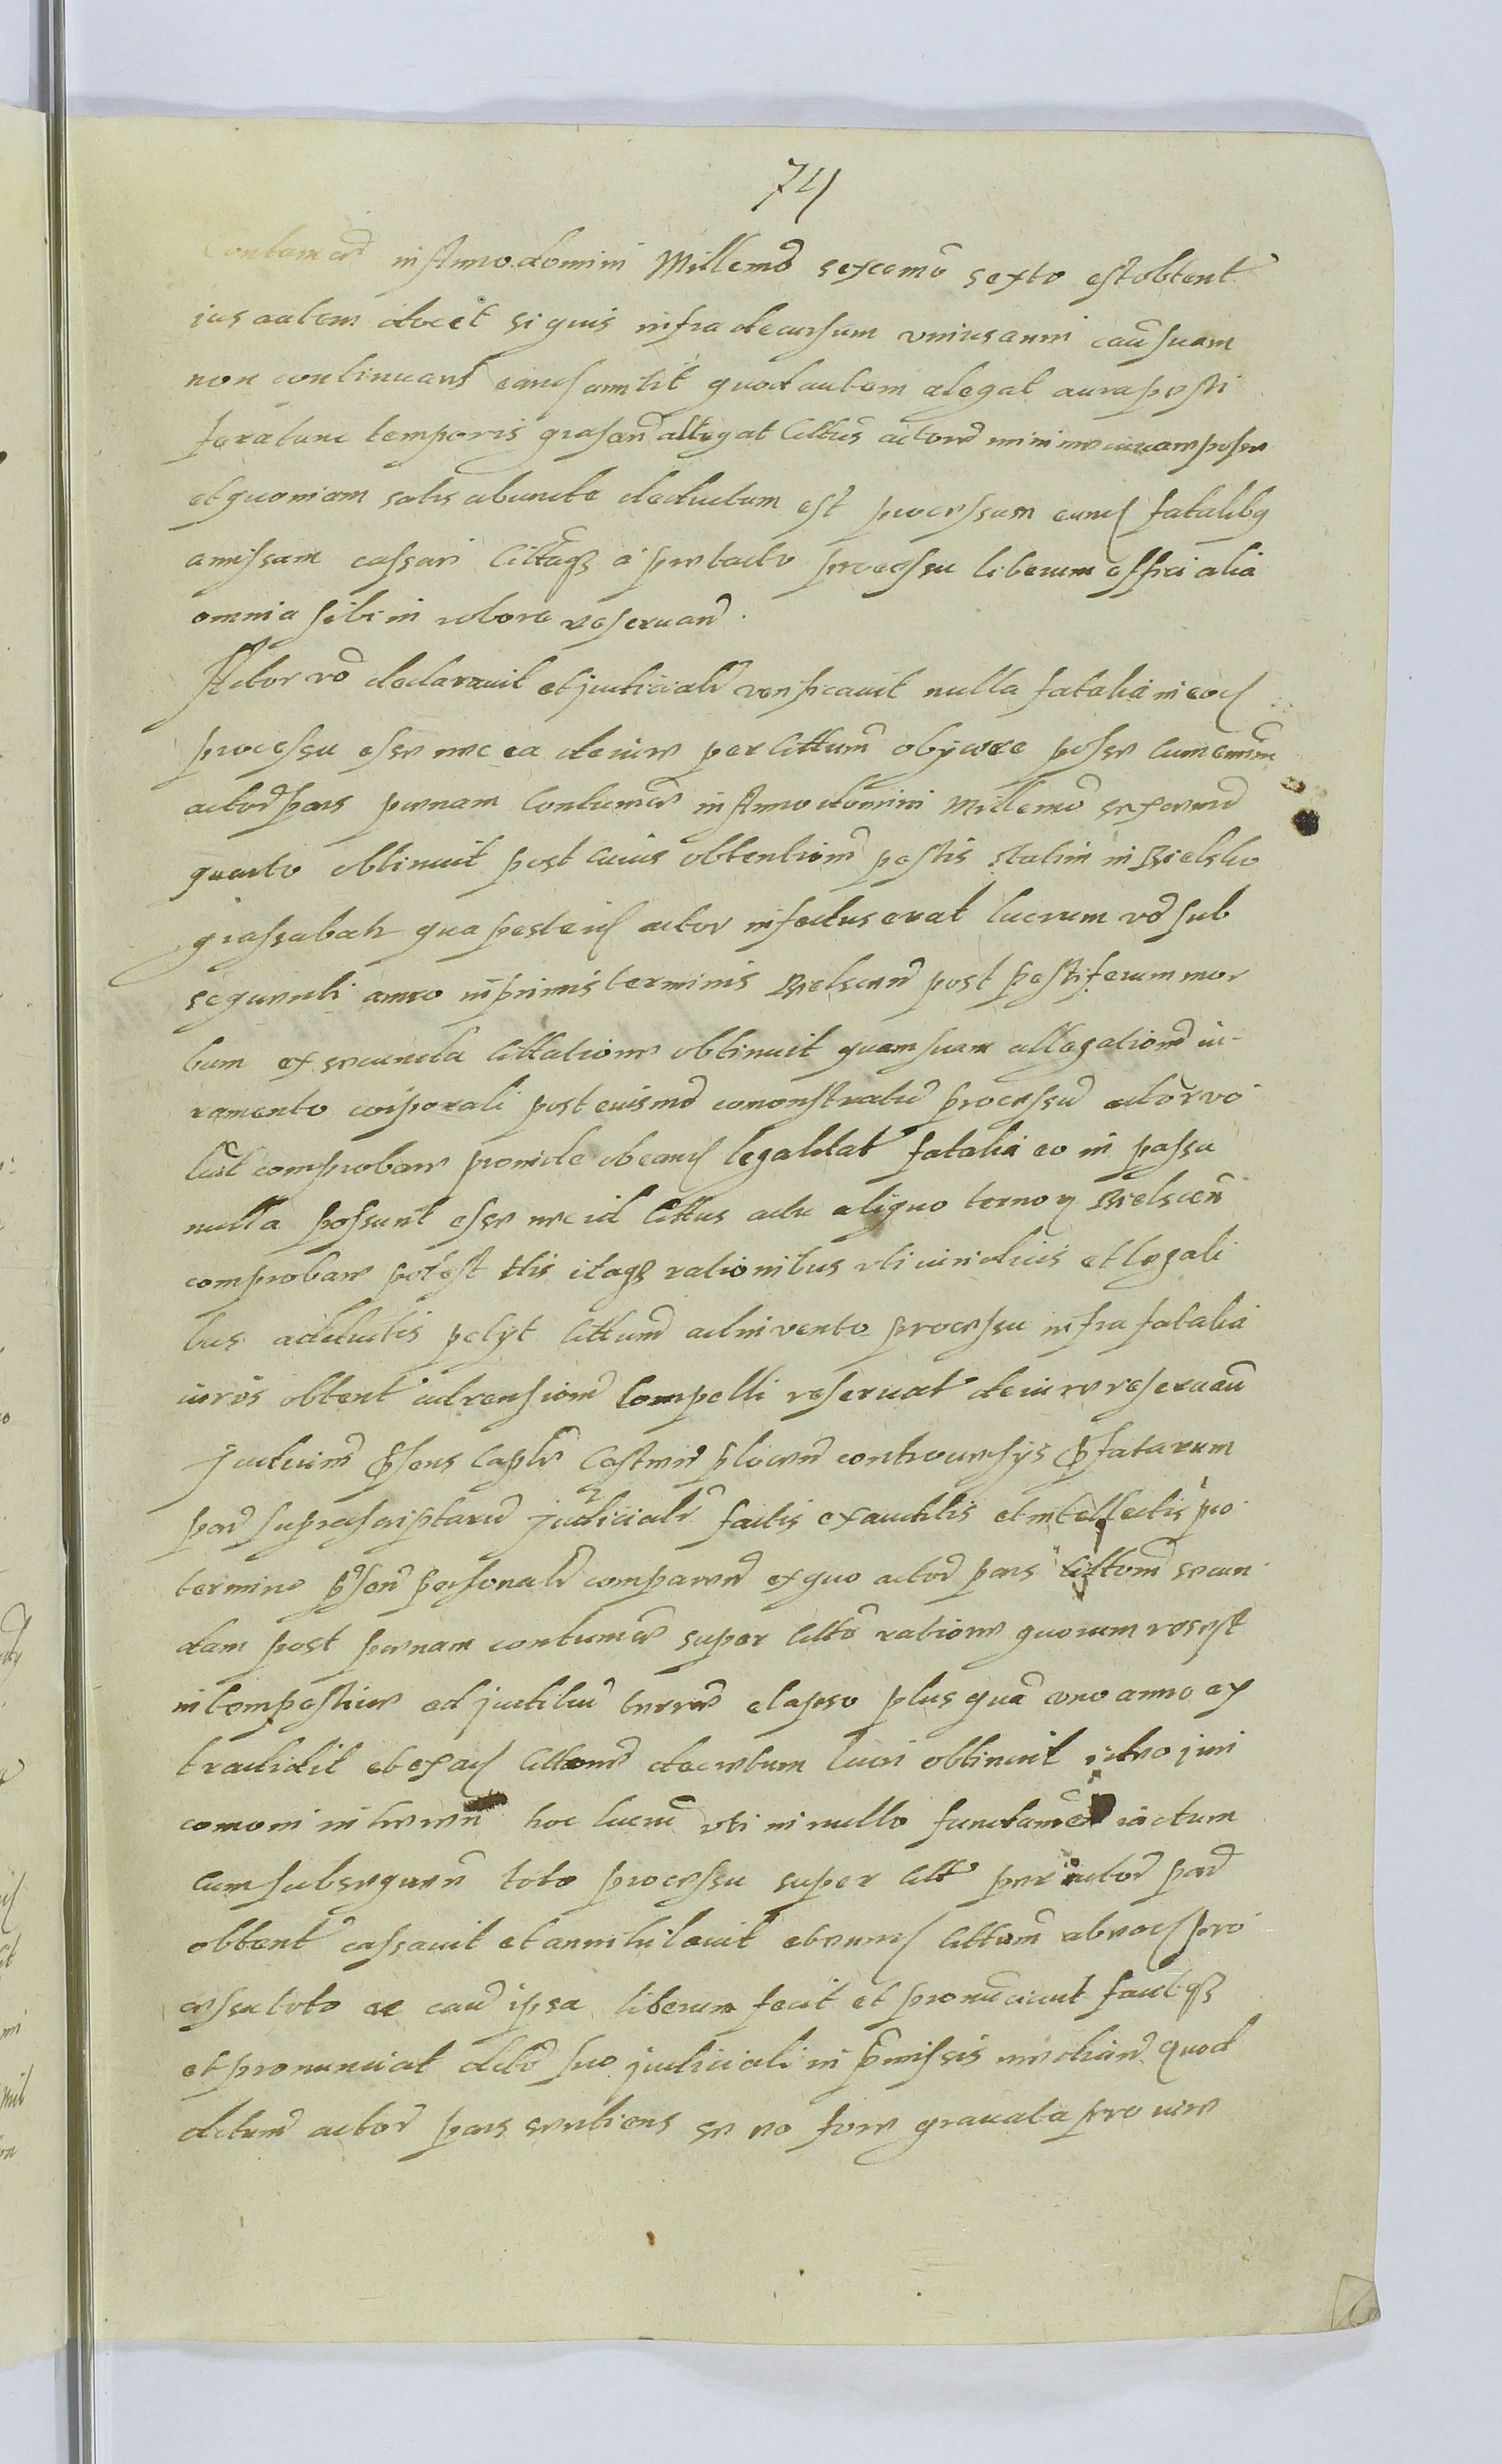 74
Contumā in Anno domini Millemo sexcemo sexto est obtent
ius autem docet si quis infra decursum vnius anni cau suam
non continuant eand amitit quod autem alegat aura pesti
fera tunc temporis grasan allegat Citus actore minime iuvare posse
et quoniam satis abunde deductum est processum eund fatalibq
amissam cassari Cittaqz a pretacto processu liberum effici alia
omnia sibi in robore reseruan.
Actor vo declarauit et judicialr verificauit nulla fatalia in eod
processu esse nec ea de iure per Cittum obijcere posse cum enim
actor pars penam Contumā in Anno domini Millemo sexcemo
quarto obtinuit post cuius obtentiom pestis statim in Bielsko
grassabatr qua peste id actor infectus erat lucrum vo sub
sequenti anno in primis terminis Bielscen post pestiferum mor
bum ex secunda Cittatione obtinuit quam suam allegatiom iu-
ramento corporali post euismo commonstratu processu actor vo
luit comprobare proinde ob eand legalitat fatalia eo in passu
nulla possunt esse nec id Cittus actu aliquo termoq Bielscen
comprobare potest His itaqz rationibus vti iuridicis et legali
bus adductis petijt Cittum ad inventa processu infra fatalia
iuris obtent ad rensiom compelli reservat de iure reseruan
Judicium pnsens Capl Castren plocen controuersijs pfatarum
par suprascriptaru judicialr factis exauditis et intellectis pro
termino pnsen personalr comparen ex quo actor pars Cittom secun
dam post penam contumā super Citto ratione quorum reseft
intempestiue ad judiciu terre elapso plus qua vno anno ex
tradidit et ex ad Cittone decretum lucri obtinuit ideo juri
comoni inheren hoc lucru vti in nullo fundameto iactum
cum subsequen toto processu super Citt per actor par
obtent cassauit et annihilauit et eund Cittum ab eod pro
cessu toto ac cau ipsa liberum fecit et pronunciauit facitqz
et pronunciat decto suo judiciali in pmissis median Quod
dictum actor pars sentiens se eo fore grauata pro iure